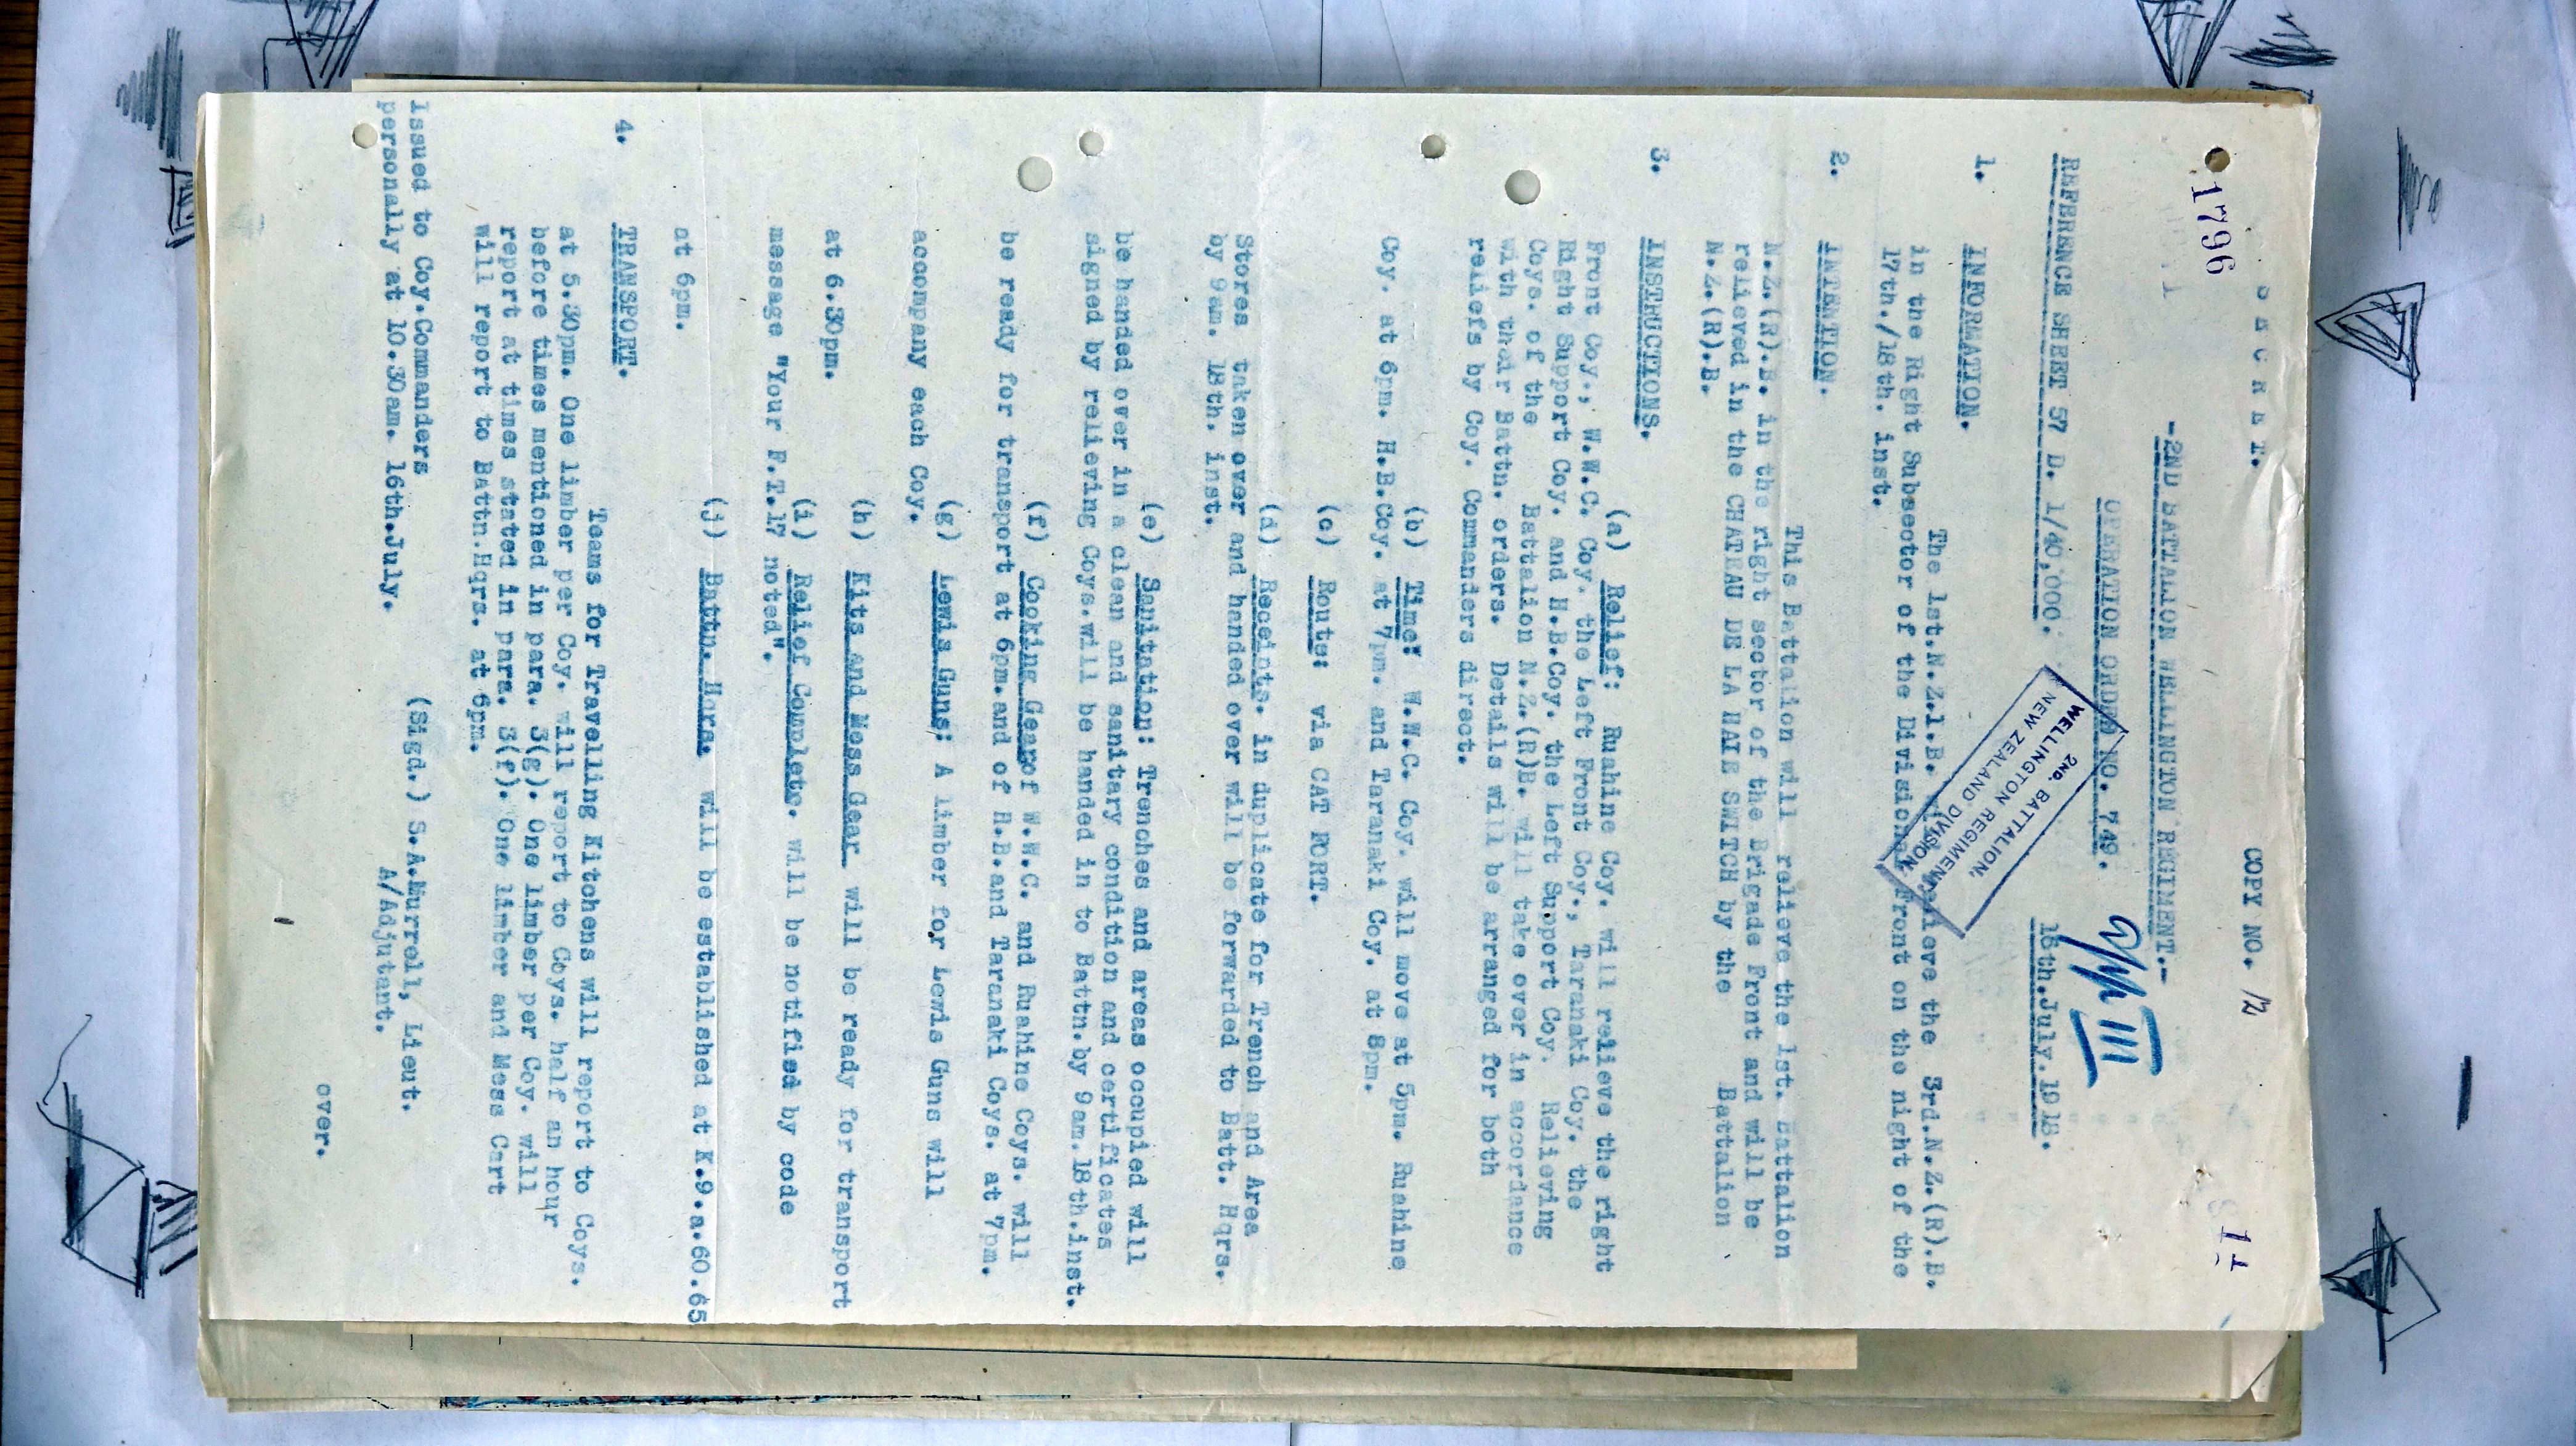 S E C R E T.
COPY NO. 12
1796
-2ND BATTALION WELLINGTON REGIMENT.-
OPERATION ORDER NO. 749.
REFERENCE SHEET 57 D. 1/40,000.
16th.July.1918.
2ND. BATTALION,
WELLINGTON REGIMENT,
NEW ZEALAND DIVISION
1. INFORMATION.
The 1st.N.Z.I.B. will relieve the 3rd.N.Z.(R).B.
in the Right Subsector of the Divisional Front on the night of the
17th./18th. inst.
2. INTENTION.
This Battalion will relieve the 1st. Battalion
N.Z.(R).B. in the right sector of the Brigade Front and will be
relieved in the CHATEAU DE LA HAIE SWITCH by the Battalion
N.Z.(R).B.
3. INSTRUCTIONS.
(a) Relief: Ruahine Coy. will relieve the right
Front Coy., W.W.C. Coy. the Left Front Coy., Taranaki Coy. the
Right Support Coy. and H.B.Coy. the Left Support Coy. Relieving
Coys. of the Battalion N.Z.(R)B. will take over in accordance
with their Battn. orders. Details will be arranged for both
reliefs by Coy. Commanders direct.
(b) Time: W.W.C. Coy. will move at 5pm. Ruahine
Coy. at 6pm. H.B.Coy. at 7pm. and Taranaki Coy. at 8pm.
(c) Route: via CAT FORT.
(d) Receipts. in duplicate for Trench and Area
Stores taken over and handed over will be forwarded to Batt. Hqrs.
by 9am. 18th. inst.
(e) Sanitation: Trenches and areas occupied will
be handed over in a clean and sanitary condition and certificates
signed by relieving Coys.will be handed in to Battn.by 9am.18th.inst.
(f) Cooking Gearof W.W.C. and Ruahine Coys. will
be ready for transport at 6pm.and of H.B.and Taranaki Coys. at 7pm.
(g) Lewis Guns: A limber for Lewis Guns will
accompany each Coy.
(h) Kits and Mess Gear will be ready for transport
at 6.30pm.
(i) Relief Complete. will be notified by code
message "Your F.T.17 noted".
(j) Battn. Hqrs. will be established at K.9.a.60.65
at 6pm.
4. TRANSPORT.
Teams for Travelling Kitchens will report to Coys.
at 5.30pm. One limber per Coy. will report to Coys. half an hour
before times mentioned in para. 3(g). One limber per Coy. will
report at times stated in para. 3(f). One limber and Mess Cart
will report to Battn.Hqrs. at 6pm.
(Sigd.) S.A.Murrell, Lieut.
A/Adjutant.
Issued to Coy.Commanders
personally at 10.30am. 16th.July.
over.